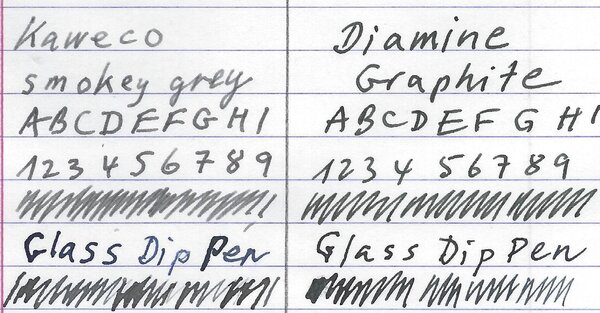 Kaweco
smokey grey
ABCDEFGHI
123456789
Glass Dip Pen
Diamine
Graphite
ABCDEFGHI
123456789
Glass Dip Pen